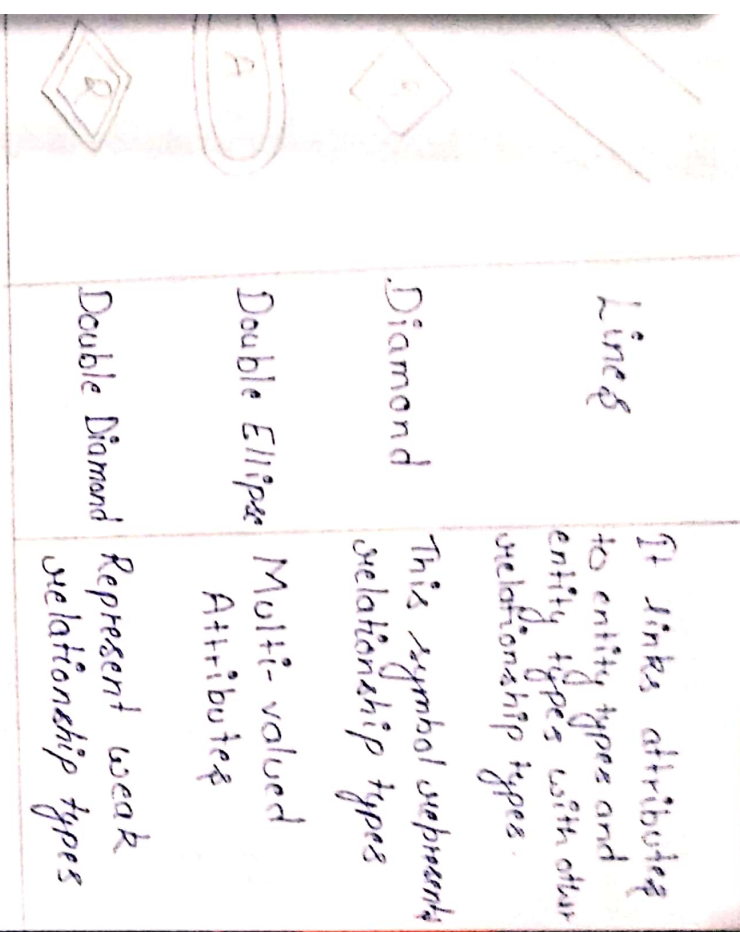 Lines
It links attributes
to entity types and
entity types with other
relationship types.
Diamond
This symbol represents
relationship types
A
Double Ellipse
Multi-valued
Attributes
R
Double Diamond
Represent weak
relationship types